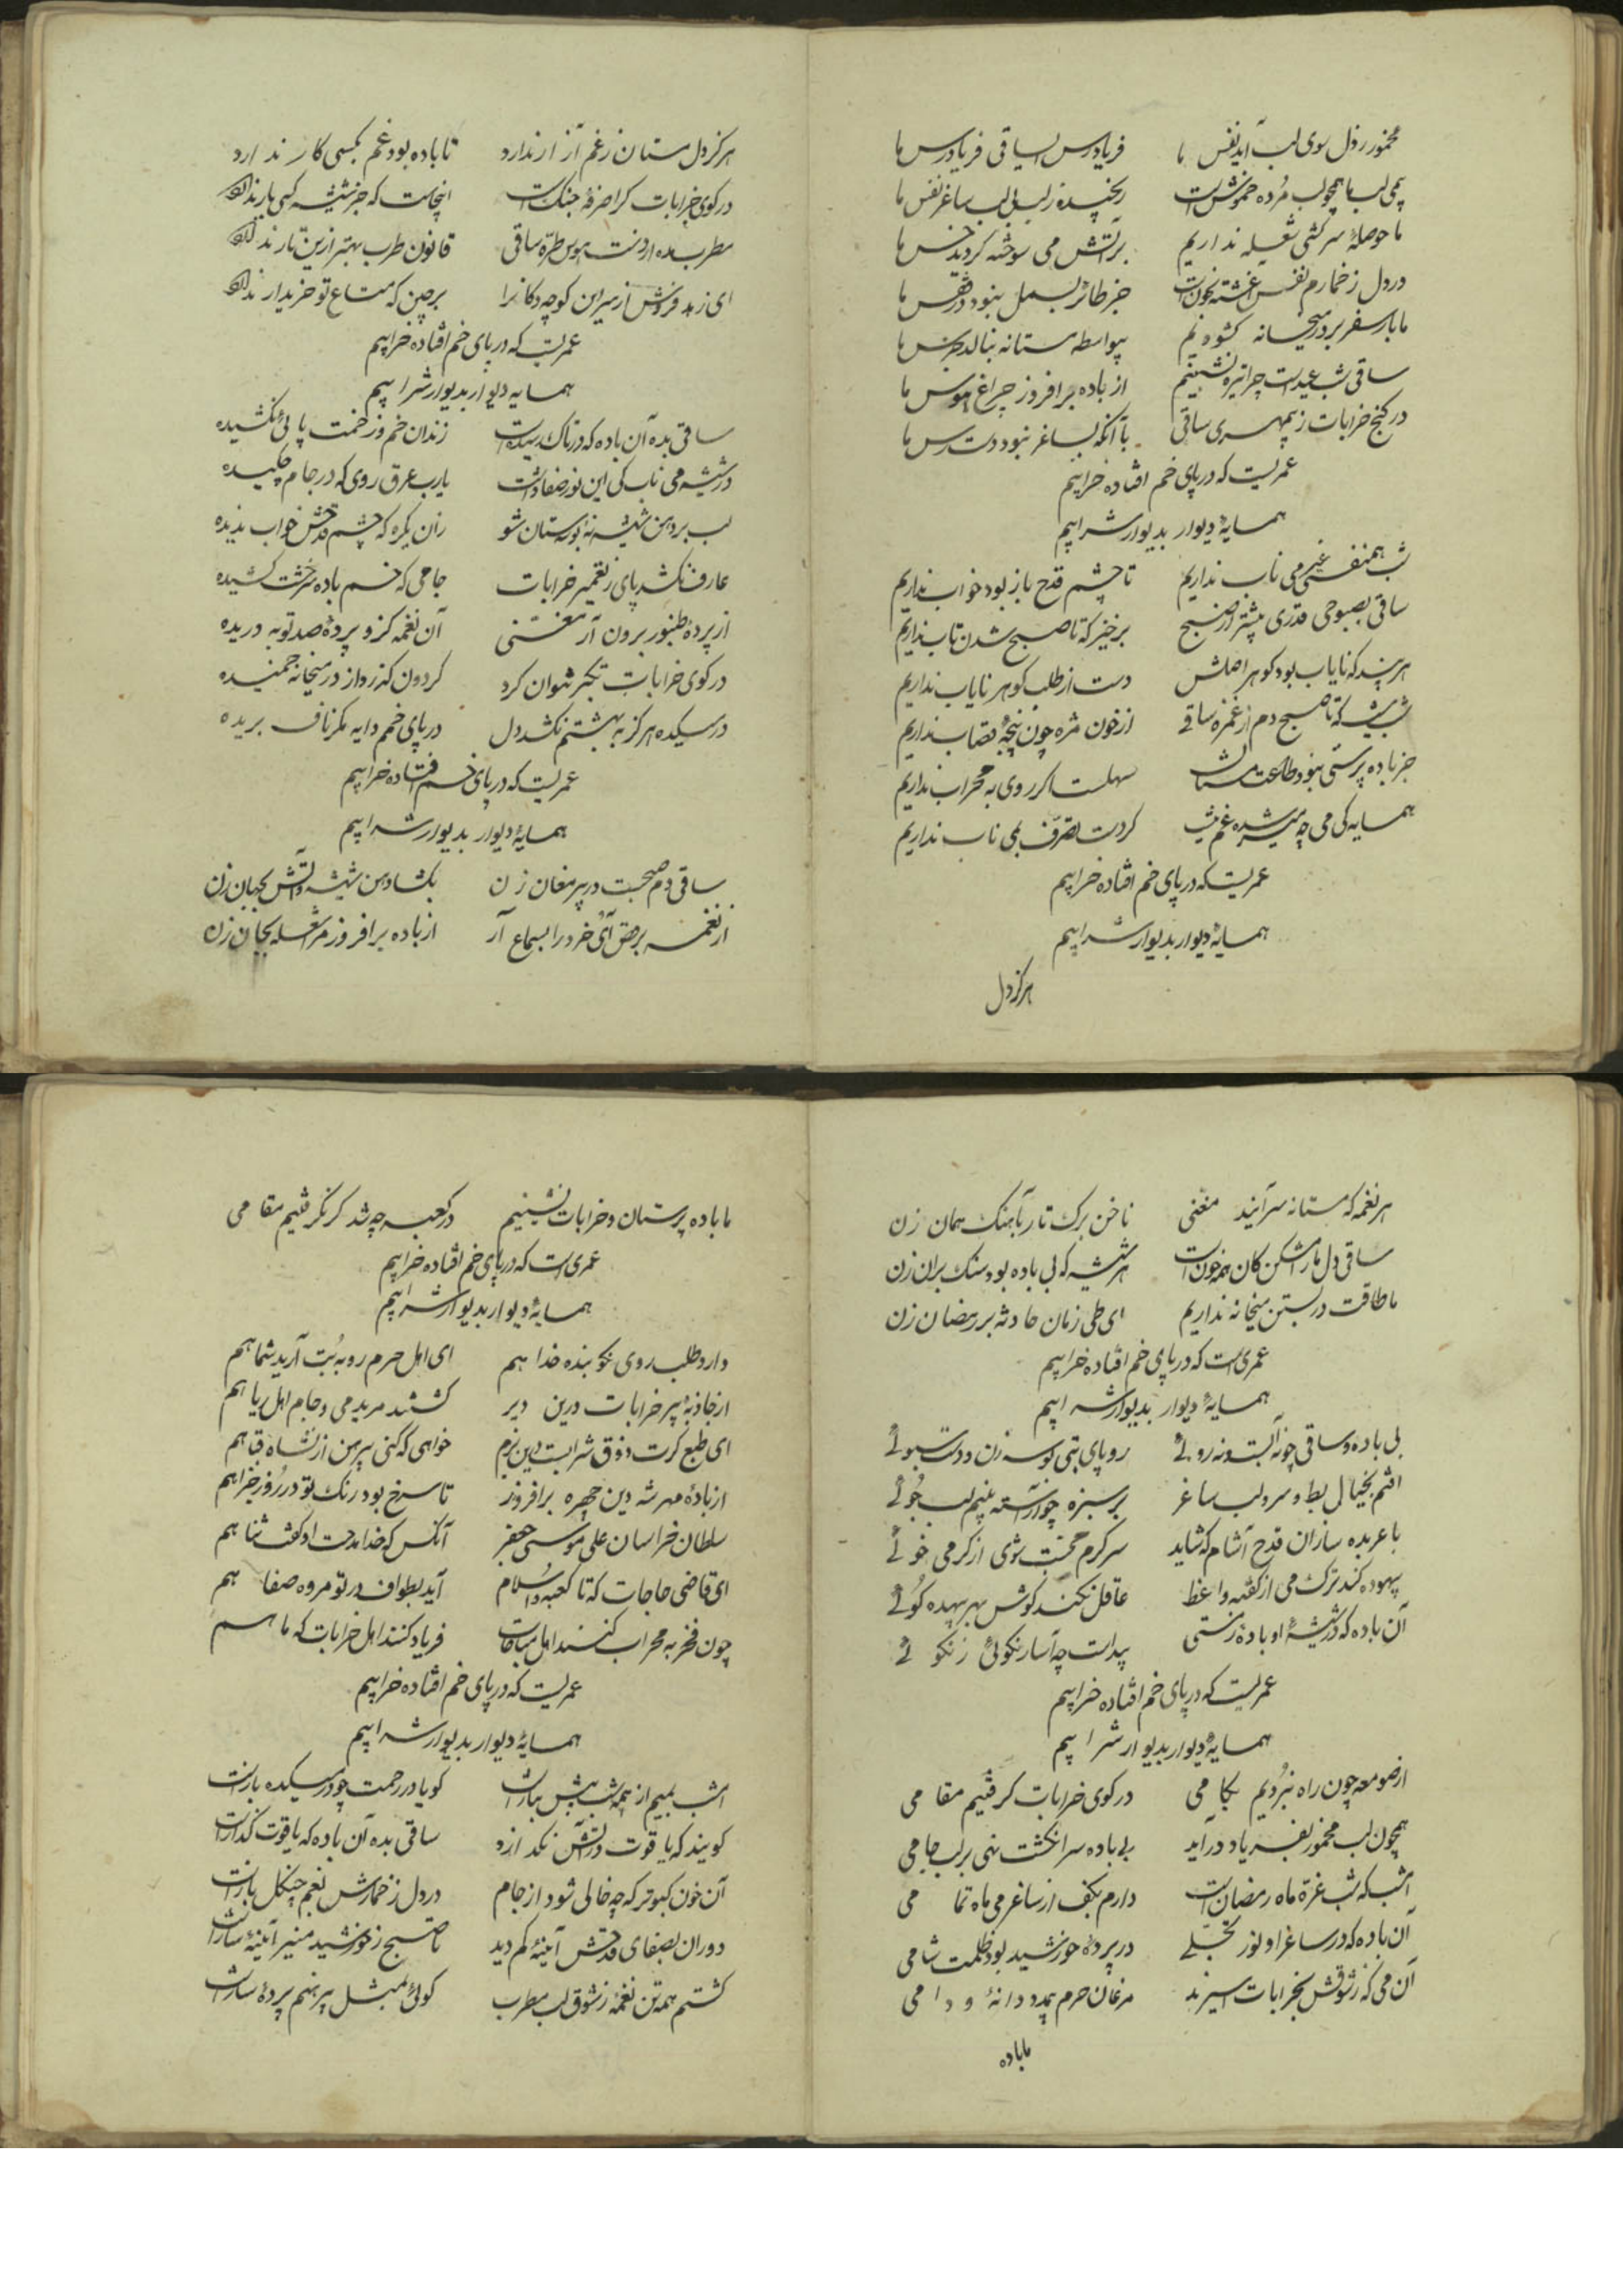 مخمور ز دل سوی لب آید نفس ما فریادرس ای ساقی فریادرس ما
بی می لب ما همچو لب مرده خموش است ریخیده ز لب بی لب ساغر نفس ما
ما حوصلهٔ سرکشی شعله نداریم بر آتش می سوخته کردند خس ما
در دل ز خمارم نفس آغشته بخونست جز طائر بسمل نبود در قفس ما
ما بار سفر بر در میخانه کشودیم بیواسطه مستانه ننالد جرس ما
ساقی شب عیدست چرا تیره نشینیم از باده برافروز چراغ هوس ما
در کنج خرابات ز بیمهری ساقی با آنکه بساغر نبود دست رس ما
عمریست که در پای خم افتاده خرابیم
همسایهٔ دیوار بدیوار شرابیم
شب همنفسی غیر می ناب نداریم تا چشم قدح باز بود خواب نداریم
ساقی بصبوحی قدری پیشتر از صبح برخیز که تا صبح شدن تاب نداریم
هر چند که نایاب بود کوهر اصلش دست از طلب کوهر نایاب نداریم
شب نیست که تا صبح دم از غمزه ساقی از خون مژه چون پنجهٔ قصاب نداریم
جز باده پرستی نبود طاعت مستان سهلست اکر روی به محراب نداریم
همسایه کی می چه میسر شده غم نیست کر دست تصرف بمی ناب نداریم
عمریست که در پای خم افتاده خرابیم
همسایهٔ دیوار بدیوار شرابیم
هرکز دل
هرکز دل مستان ز غم آزار ندارد تا باده بود غم بکسی کار ندارد
در کوی خرابات کرا صرفهٔ جنک است اینجاست که جز شیشه کسی بار ندارد
مطرب مده از دست هوس طرهٔ ساقی قانون طرب بهتر ازین تار ندارد
ای زهد فروش از سر این کوچه دکانرا برچین که متاع تو خریدار ندارد
عمریست که در پای خم افتاده خرابیم
همسایه دیوار بدیوار شرابیم
ساقی بده آن باده که در تاک رسیده است زندان خم و زحمت پائی نکشیده
در شیشه می ناب کی این نور صفا داشت یارب عرق روی که در جام چکیده
لب بر دهن شیشه نه و مستان شو زان پکره که چشم قدحش خواب ندیده
عارف نکشد پای ز تعمیر خرابات جامی که خم باده سرخشت کشیده
از پردهٔ طنبور برون آر مغنی آن نغمه کزو پردهٔ صد توبه دریده
در کوی خرابات تکبر نتوان کرد کردون کذرد از در میخانه خمیده
در میکده هرکز به بهشتم نکشد دل در پای خمم دایه مکر ناف بریده
عمریست که در پای خم افتاده خرابیم
همسایهٔ دیوار بدیوار شرابیم
ساقی دم صبحست در پیر مغان زن بکشا دهن شیشه و آتش بجهان زن
از نغمه برقص آی خرد را بسماع آر از باده برافروز مر شعله بجان زن
هر نغمه که مستانه سرآیند مغنی ناخن برک تار بآهنک همان زن
ساقی دل ما را مشکن کان همه خونست هر شیشه که بی باده بود سنک بر آن زن
ما طاقت در بستن میخانه نداریم ای طی زمان حادثه بر رمضان زن
عمری است که در پای خم افتاده خرابیم
همسایهٔ دیوار بدیوار شرابیم
بی باده و ساقی چونه آبست و نه روئی رو پای بتی بوسه زن و دست سبوئی
افتم بخیال بط و سرو لب ساغر بر سبزه چو آراسته بینم لب جوئی
با عربده سازان قدح آشام که شاید سرکرم محبت شوی از کرمی خوئی
بیهوده کند ترک می از کفته واعظ عاقل نکند کوش بهر بیهده کوئی
آن باده که در شیشهٔ او بادهٔ زشتی پیداست چه آسار نکوئی ز نکوئی
عمریست که در پای خم افتاده خرابیم
همسایهٔ دیوار بدیوار شرابیم
از صومعه چون راه نبردیم بکامی در کوی خرابات کرفتیم مقامی
همچون لب مخمور بفریاد درآید بی باده سر انکشت نهی بر لب جامی
امشب که شب غرهٔ ماه رمضان است دارم بکف از ساغر می ماه تمامی
آن باده که در ساغر او نور تجلی در پردهٔ خورشید بود ظلمت شامی
آن می که ز شوقش بخرابات اسیرند مرغان حرم بی مدد دانهٔ و دامی
ما باده
ما باده پرستان و خرابات نشینیم در کعبه چه شد کر نکرفتیم مقامی
عمری است که در پای خم افتاده خرابیم
همسایهٔ دیوار بدیوار شرابیم
دارد طلب روی نکو بنده خدا هم ای اهل حرم رو به بت آرید شما هم
از جاذبهٔ پیر خرابات درین دیر کشتند مرید می و جام اهل ریا هم
ای طبع کرت ذوق شرابست درین بزم خواهی که کنی پیرهن از نشاه قبا هم
از بادهٔ مهر شه دین چهره برافروز تا سرخ بود رنک تو در روز جزا هم
سلطان خراسان علی موسی جعفر آنکس که خدا مدحت او کفت ثنا هم
ای قاضی حاجات که تا کعبهٔ اسلام آید بطواف در تو مروه صفا هم
چون فخر به محراب کنند اهل مناجات فریاد کنند اهل خرابات که ما هم
عمریست که در پای خم افتاده خرابیم
همسایهٔ دیوار بدیوار شرابیم
امشب بمیم از همه شب بیش نیازست کویا در رحمت چو در میکده بازست
کویند که یاقوت در آتش نکدازد ساقی بده آن باده که یاقوت کدازست
آن خون کبوتر که چه خالی شود از جام در دل ز خمارش نغم چنکل بازست
دوران بصفای قدحش آینهٔ کم دید تا صبح ز خورشید منیر آینه سازست
کشتم همه تن نغمه ز شوق لب مطرب کوئی بمثل پیرهنم پردهٔ سازست